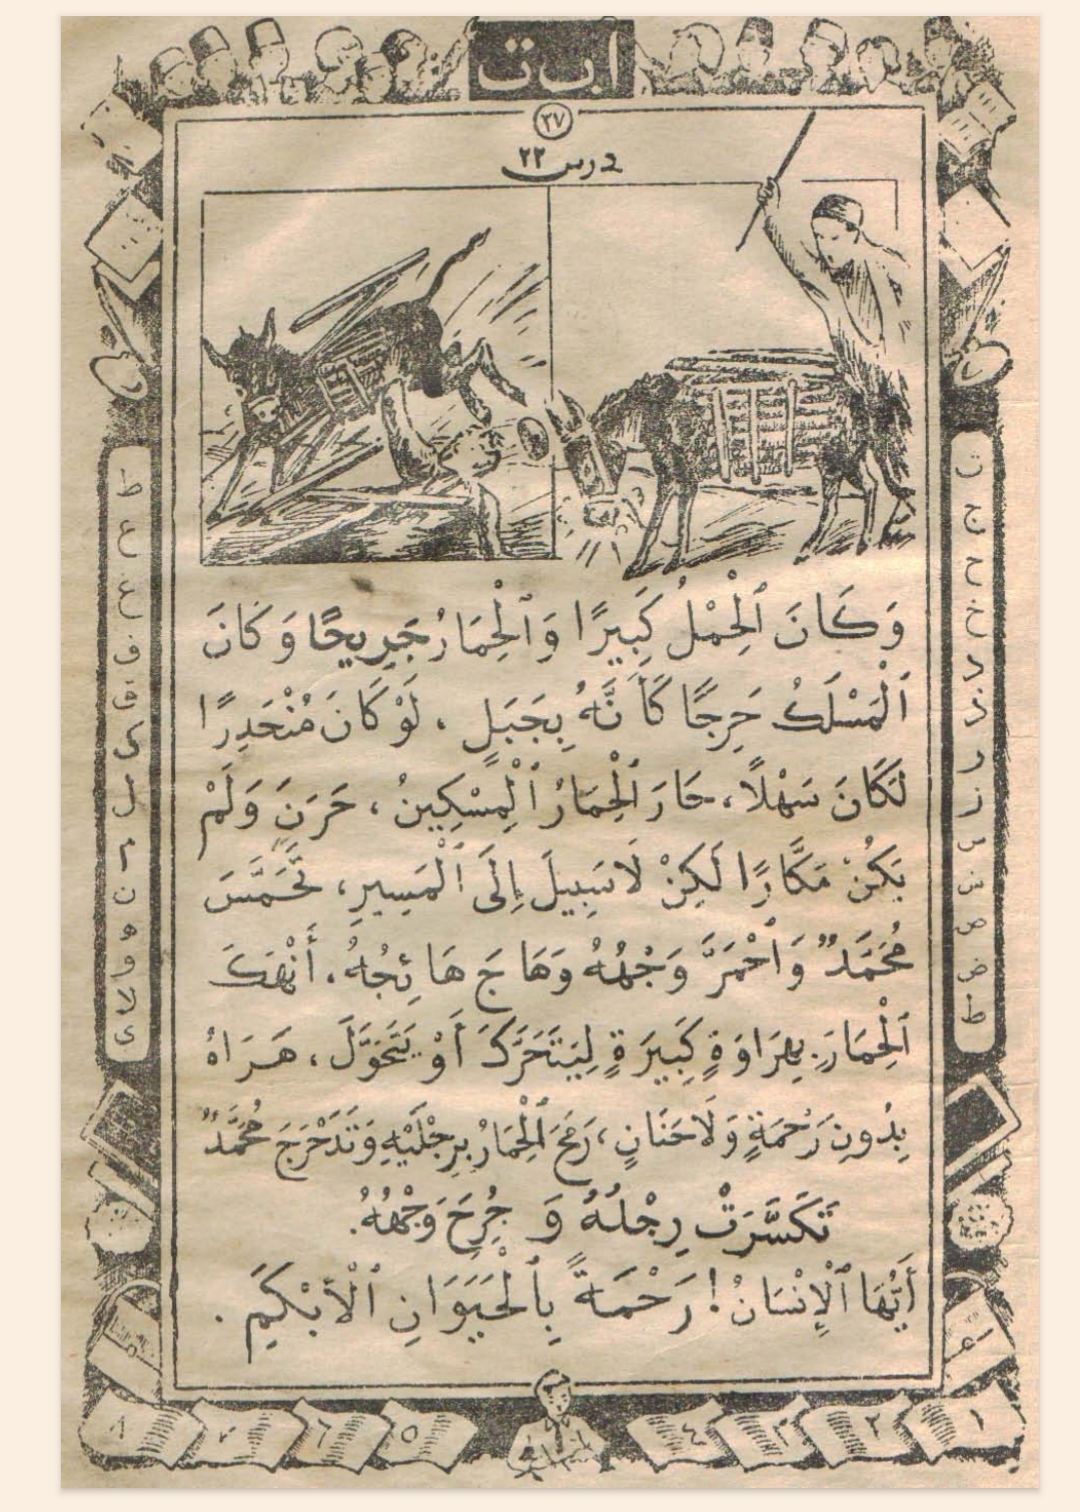 ا ب ت
٢٧
درس ٢٢
وَكَانَ ٱلْحِمْلُ كَبِيرًا وَٱلْحِمَارُ جَرِيحًا وَكَانَ
ٱلْمَسْلَكُ حَرِجًا كَأَنَّهُ بِجَبَلٍ ، لَوْ كَانَ مُنْحَدِرًا
لَكَانَ سَهْلًا، حَارَ ٱلْحِمَارُ ٱلْمِسْكِينُ ، حَرَنَ وَلَمْ
يَكُنْ مَكَّارًا لَكِنْ لَا سَبِيلَ إِلَى ٱلْمَسِيرِ، تَحَمَّسَ
مُحَمَّدٌ وَٱحْمَرَّ وَجْهُهُ وَهَاجَ هَائِجُهُ. أَنْهَكَ
ٱلْحِمَارَ بِهِرَاوَةٍ كَبِيرَةٍ لِيَتَحَرَّكَ أَوْ يَتَحَوَّلَ ، هَرَاهُ
بِدُونِ رَحْمَةٍ وَلَا حَنَانٍ ، رَمَحَ ٱلْحِمَارُ بِرِجْلَيْهِ وَتَدَحْرَجَ مُحَمَّدٌ
تَكَسَّرَتْ رِجْلُهُ وَ جُرِحَ وَجْهُهُ.
أَيُّهَا ٱلْإِنْسَانُ ! رَحْمَةً بِٱلْحَيَوَانِ ٱلْأَبْكَمِ .
ت
ج
ح
خ
د
ذ
ر
ز
س
ش
ص
ض
ط
ظ
ع
غ
ف
ق
ك
ل
م
ن
ه
و
لا
ى
١ ٢ ٣ ٤ ٥ ٦ ٧ ٨